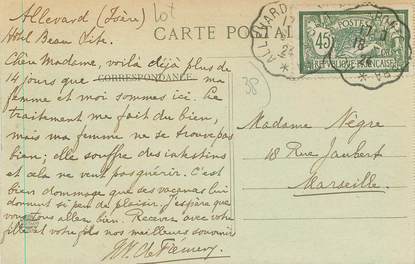 Allevard (Isère) lot
Hôtel Beau Site.
CARTE POSTALE
Chère Madame, voilà déjà plus de
14 jours que CORRESPONDANCE ma
femme et moi sommes ici. Le
traitement me fait du bien,
mais ma femme ne se trouve pas
bien; elle souffre des intestins
et cela ne veut pas guérir. C'est
bien dommage que ses vacances lui
donnent si peu de plaisir. J'espère que
vous tous allez bien. Recevez avec votre
fille et votre fils nos meilleurs souvenirs
38
POSTES
45
RÉPUBLIQUE FRANÇAISE
ALLEVARD
Madame Nègre
18 Rue Jaubert
Marseille.